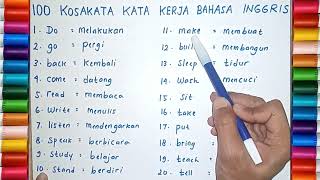 100 KOSAKATA KATA KERJA BAHASA INGGRIS
1. Do = melakukan
2. go = pergi
3. back = Kembali
4. come = datang
5. read = membaca
6. Write = menulis
7. listen = mendengarkan
8. Speak = berbicara
9. Study = belajar
10. Stand = berdiri
11. make = membuat
12. buil = membangun
13. Sleep = tidur
14. Wash = mencuci
15. Sit =
16. take
17. put
18. bring
19. teach
20. tell =